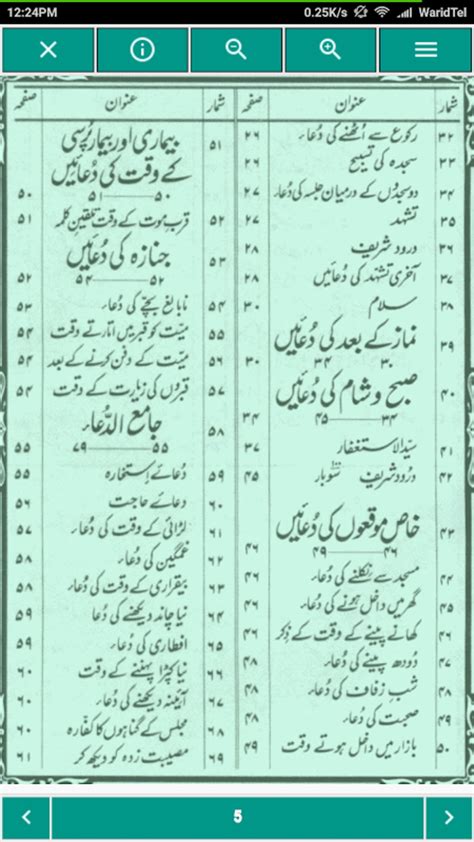 12:24PM 0.25K/s WaridTel
شمار عنوان صفحہ
۳۲ رکوع سے اُٹھنے کی دُعاء ۲۶
۳۳ سجدہ کی تسبیح ۲۶
۳۴ دو سجدوں کے درمیان جلسہ کی دُعا ۲۷
۳۵ تشہد ۲۷
۳۶ درود شریف ۲۸
۳۷ آخری تشہد کی دُعائیں ۲۸
۳۸ سلام ۳۰
۳۹ نماز کے بعد کی دُعائیں ۳۰
۳۰ ۳۴
۴۰ صبح و شام کی دُعائیں ۳۴
۳۴ ۴۵
۴۱ سیّد الاستغفار ۳۷
۴۲ درود شریف سَوبار ۴۵
۴۳ خاص موقعوں کی دُعائیں ۴۶
۴۶ ۴۹
۴۴ مسجد سے نکلنے کی دُعاء ۴۶
۴۵ گھر میں داخل ہونے کی دُعاء ۴۶
۴۶ کھانے پینے کے وقت کے ذِکر ۴۶
۴۷ دُودھ پینے کی دُعاء ۴۸
۴۸ شب زفاف کی دُعاء ۴۸
۴۹ صحبت کی دُعاء ۴۸
۵۰ بازار میں داخل ہوتے وقت ۴۹
شمار عنوان صفحہ
۵۱ بیماری اور بیمار پُرسی
کے وقت کی دُعائیں ۵۰
۵۰ ۵۱
۵۲ قربِ موت کے وقت تلقین کلمہ ۵۱
۵۳ جنازہ کی دُعائیں ۵۲
۵۲ ۵۴
۵۴ نابالغ بچّے کی دُعاء ۵۳
۵۵ میّت کو قبر میں اُتارتے وقت ۵۴
۵۶ میّت کے دفن کرنے کے بعد ۵۴
۵۷ قبروں کی زیارت کے وقت ۵۴
۵۸ جامع الدُّعاء
۵۵ ۷۹
۵۹ دُعائے اِستخارہ ۵۵
۶۰ دعائے حاجت ۵۶
۶۱ لڑائی کے وقت کی دُعاء ۵۷
غمگین کی دُعاء ۵۸
بیقراری کے وقت کی دُعاء ۵۸
نیا چاند دیکھنے کی دُعاء ۵۹
افطاری کی دُعاء ۵۹
نیا کپڑا پہننے کے وقت ۶۰
آئینہ دیکھنے کی دُعاء ۶۰
مجلس کے گناہوں کا کفّارہ ۶۰
۶۹ مصیبت زدہ کو دیکھ کر ۶۱
5